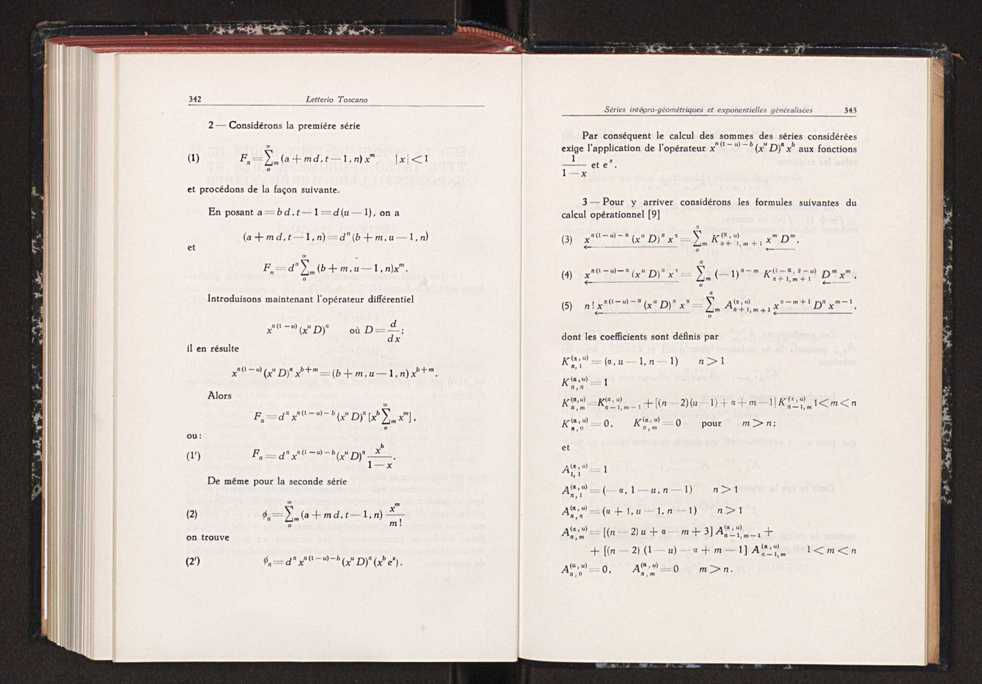 342 Letterio Toscano
2 — Considérons la première série
(1) F_n = ∑_m (a + m d, t — 1, n) x^m |x| < 1
et procédons de la façon suivante.
En posant a = b d, t — 1 = d (u — 1), on a
(a + m d, t — 1, n) = d^n (b + m, u — 1, n)
et
F_n = d^n ∑_m^∞ (b + m, u — 1, n) x^m.
Introduisons maintenant l'opérateur différentiel
x^{n(1 — u)} (x^u D)^n où D = d/dx;
il en résulte
x^{n(1 — u)} (x^u D)^n x^{b+m} = (b + m, u — 1, n) x^{b+m}.
Alors
F_n = d^n x^{n(1 — u) — b} (x^u D)^n [x^b ∑_m^∞ x^m],
ou:
(1') F_n = d^n x^{n(1 — u) — b} (x^u D)^n x^b/(1 — x).
De même pour la seconde série
(2) ϕ_n = ∑_m^∞ (a + m d, t — 1, n) x^m/m!
on trouve
(2') ϕ_n = d^n x^{n(1 — u) — b} (x^u D)^n (x^b e^x).
Séries intégro-géométriques et exponentielles généralisées 343
Par conséquent le calcul des sommes des séries considérées
exige l'application de l'opérateur x^{n(1 — u) — b} (x^u D)^n x^b aux fonctions
1/(1 — x) et e^x.
3 — Pour y arriver considérons les formules suivantes du
calcul opérationnel [9]
(3) x^{n(1—u)—α} (x^u D)^n x^α = ∑_m^n K_{n+1, m+1}^{(α, u)} x^m D^m,
(4) x^{n(1—u)—α} (x^u D)^n x^α = ∑_m^n (—1)^{n—m} K_{n+1, m+1}^{(1—α, 2—u)} D^m x^m,
(5) n! x^{n(1—u)—α} (x^u D)^n x^α = ∑_m^n A_{n+1, m+1}^{(α, u)} x^{n—m+1} D^n x^{m—1},
dont les coefficients sont définis par
K_{n, 1}^{(α, u)} = (α, u — 1, n — 1) n > 1
K_{n, n}^{(α, u)} = 1
K_{n, m}^{(α, u)} = K_{n—1, m—1}^{(α, u)} + [(n — 2)(u — 1) + α + m — 1] K_{n—1, m}^{(α, u)} 1 < m < n
K_{n, 0}^{(α, u)} = 0, K_{n, m}^{(α, u)} = 0 pour m > n;
et
A_{1, 1}^{(α, u)} = 1
A_{n, 1}^{(α, u)} = (— α, 1 — u, n — 1) n > 1
A_{n, n}^{(α, u)} = (α + 1, u — 1, n — 1) n > 1
A_{n, m}^{(α, u)} = [(n — 2) u + α — m + 3] A_{n—1, m—1}^{(α, u)} +
+ [(n — 2) (1 — u) — α + m — 1] A_{n—1, m}^{(α, u)} 1 < m < n
A_{n, 0}^{(α, u)} = 0, A_{n, m}^{(α, u)} = 0 m > n.